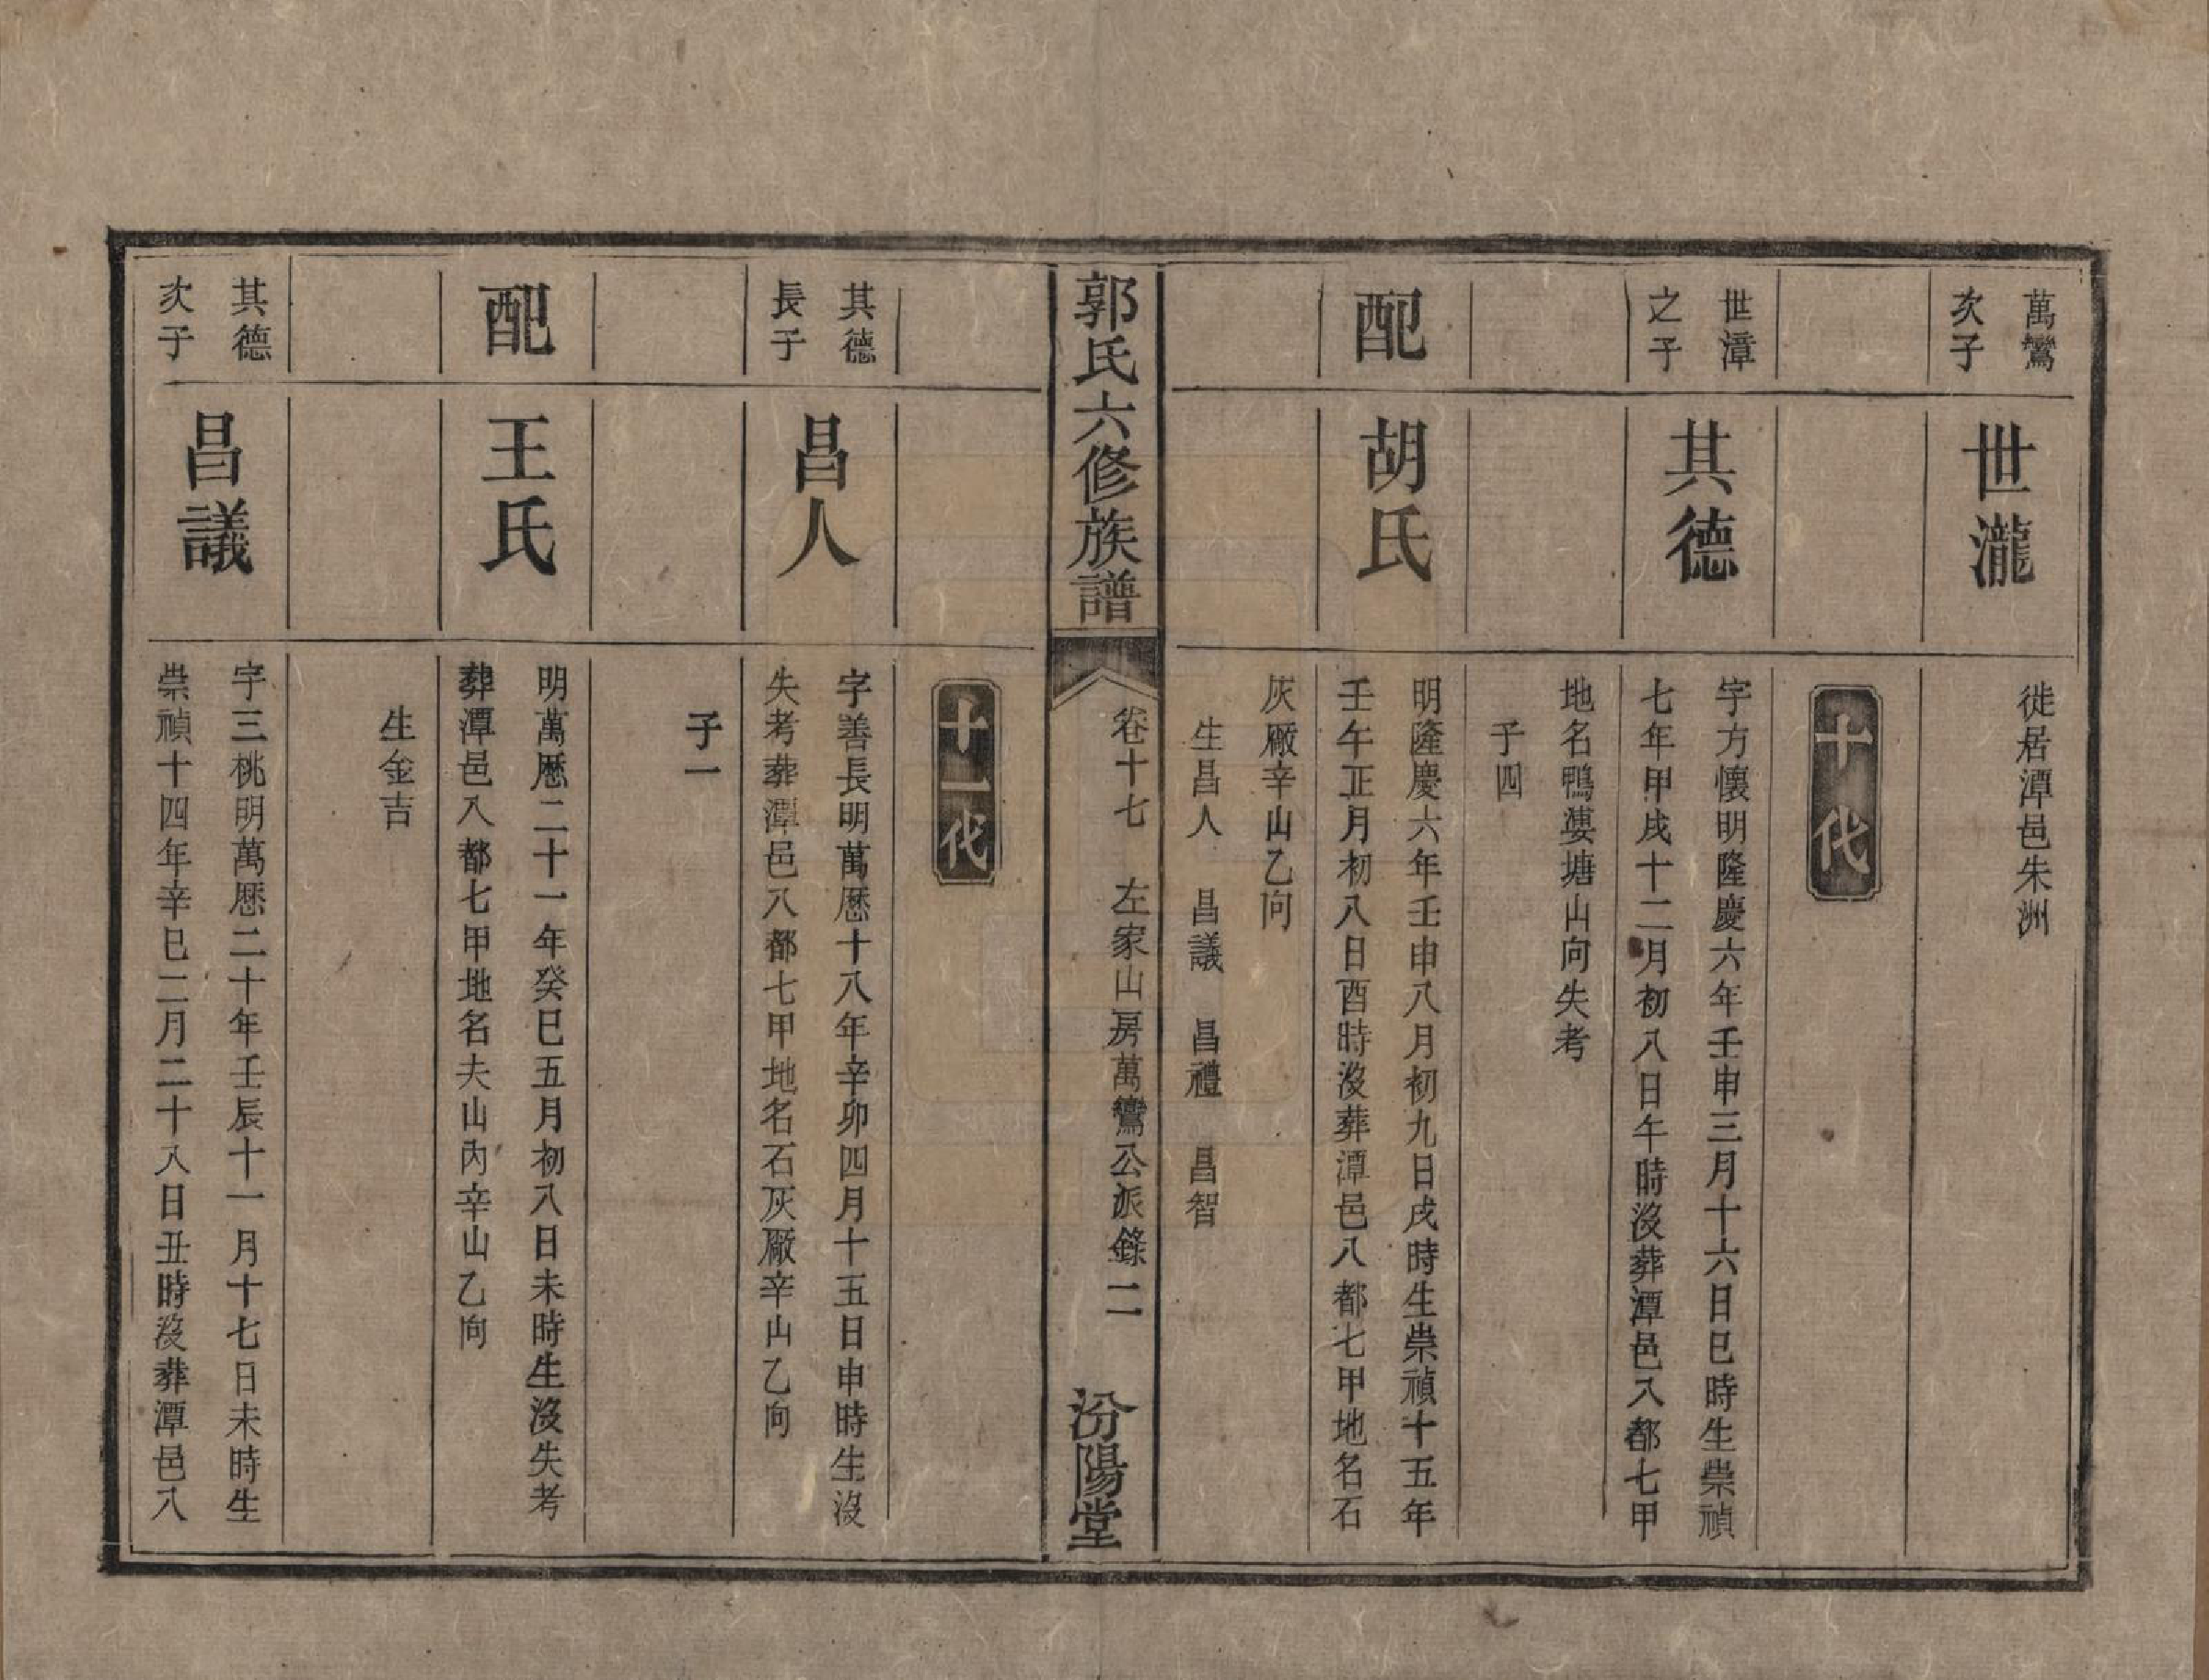 萬鸞
次子
世瀧
徙居潭邑朱洲
十代
世漳
之子
其德
字方懷明隆慶六年壬申三月十六日巳時生崇禎
七年甲戌十二月初八日午時沒葬潭邑八都七甲
地名鴨婆塘山向失考
子四
配
胡氏
明隆慶六年壬申八月初九日戌時生崇禎十五年
壬午正月初八日酉時沒葬潭邑八都七甲地名石
灰廠辛山乙向
生昌人 昌議 昌禮 昌智
郭氏六修族譜
卷十七 左家山房萬鸞公派錄 二
汾陽堂
十一代
其德
長子
昌人
字善長明萬歷十八年辛卯四月十五日申時生沒
失考葬潭邑八都七甲地名石灰廠辛山乙向
子一
配
王氏
明萬歷二十一年癸巳五月初八日未時生沒失考
葬潭邑八都七甲地名夫山內辛山乙向
生金吉
其德
次子
昌議
字三桃明萬歷二十年壬辰十一月十七日未時生
崇禎十四年辛巳二月二十八日丑時沒葬潭邑八